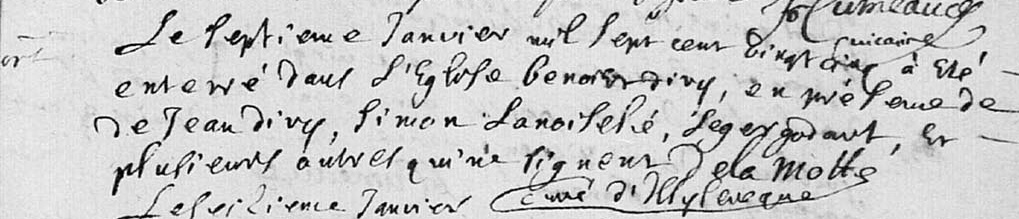 vicaire
Le septieme Janvier mil sept cent vingt cinq à Eté
enterré dans l'Eglise benoist divy, en présence de
de Jean divy, simon Lanoisselé, Leger godart, Et
plusieurs autres qui ne signent Dela Motte
Le seizieme Janvier Curé d'Illyleveque